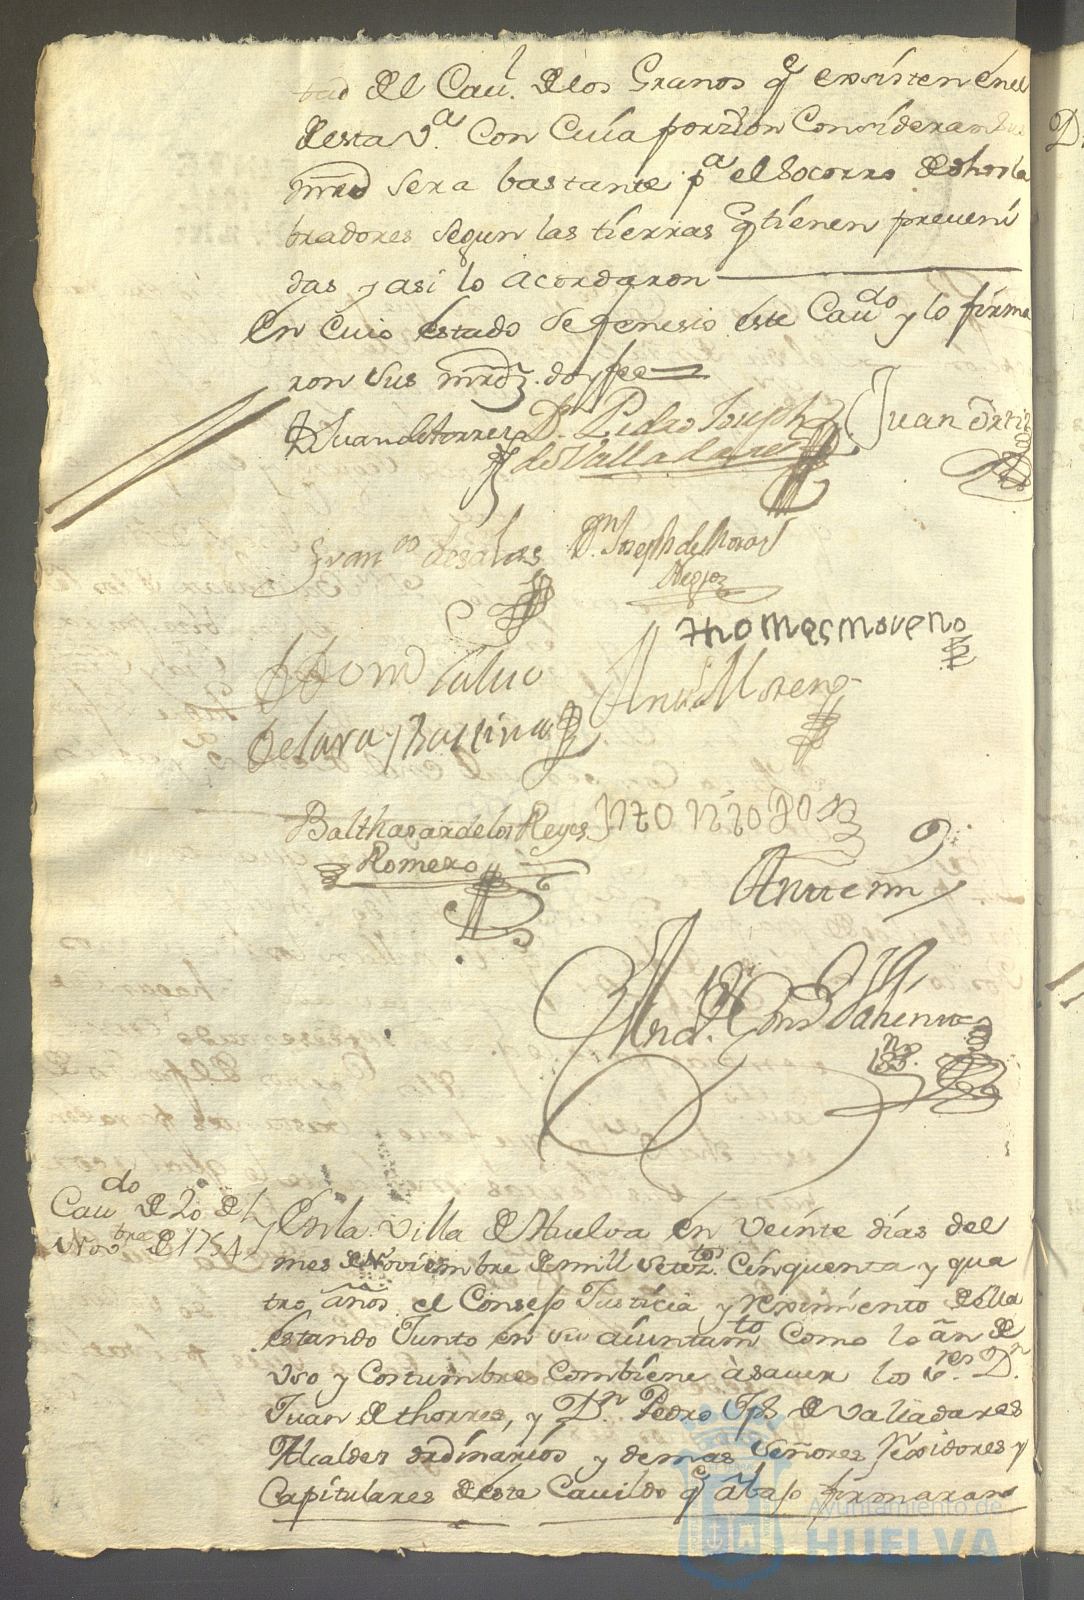 tad del Cauº. de los Granos q existen en el
de esta vª. con cuia porzion consideran sus
mrds sera bastante pª el socorro de dhos la
bradores segun las tierras q tienen preveni
das y asi lo acordaron
En cuio estado se fenesio este Caudo y lo firma
ron sus mrdz. doy fee
D Juan de torres Dn Pedro Joseph Juan Ortiz
de Valladares
Franco de salas Dn. Joseph de
thomas moreno
Anttª Moreno
de lara y
Balthazar de los Reyes
Romero
Antte mi
Caudo de 20 de
Novbre de 1754
En la villa de Huelva en veinte dias del
mes de Noviembre de mill seteztos. cinquenta y qua
tro años el Consejo Justicia y reximiento de ella
estando Junto en su aiuntamto como lo an de
uso y costumbre combiene à saver los sres. Dn
Juan de thorres, y Dn Pedro Jph de valladares
Alcaldes ordinarios y demas señores rexidores y
Capitulares de este Cavildo q abajo firmaran
Ayuntamiento de
HUELVA